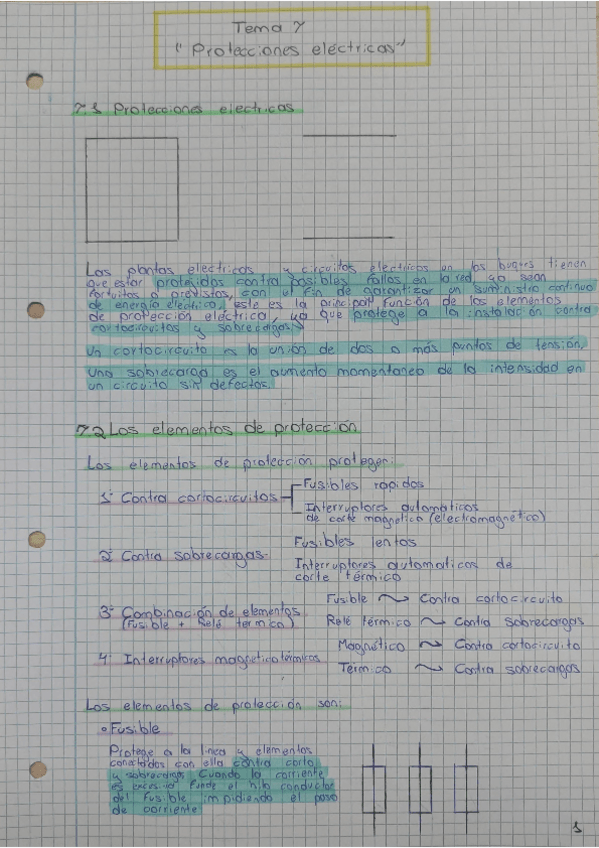 Tema 7
"Protecciones eléctricas"
7.1 Protecciones electricas
Las plantas electricas y circuitos electricos en los buques tienen
que estar protegidos contra posibles fallos en la red, ya sean
fortuitos o previstos, con el fin de garantizar un suministro continuo
de energía eléctrica, este es la principal función de los elementos
de protección eléctrica, ya que protege a la instalación contra
cortocircuitos y sobrecargas
Un cortocircuito es la unión de dos o más puntos de tensión,
Una sobrecarga es el aumento momentaneo de la intensidad en
un circuito sin defectos.
7.2 Los elementos de protección
Los elementos de protección protegen:
1º Contra cortocircuitos
Fusibles rapidos
Interruptores automaticos
de corte magnetico (electromagnético)
2º Contra sobrecargas.
Fusibles lentos
Interruptores automaticos de
corte térmico
3º Combinación de elementos
(Fusible + Relé termico)
Fusible ~ Contra cortocircuito
Relé térmico ~ Contra sobrecargas
4º Interruptores magnetotérmicos
Magnético ~ Contra cortocircuito
Termico ~ Contra sobrecargas
Los elementos de protección son:
Fusible
Protege a la linea y elementos
conectados con ella contra corto
y sobrecargas. Cuando la corriente
es excesiva funde el hilo conductor
del fusible impidiendo el paso
de corriente
1